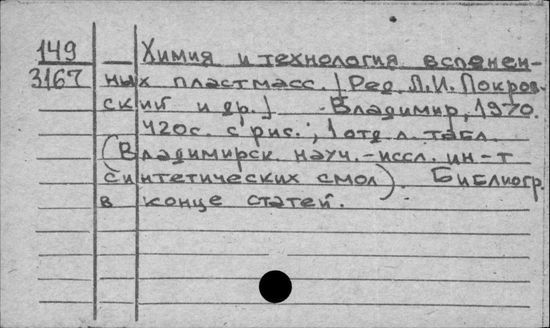 149 Химия и технология вспенен-
3167 ных пластмасс. [Ред. Л.И. Покров-
ский и др.] - Владимир, 1970.
420с. с рис.; 1 отд. л. табл.
(Владимирск. науч.-иссл. ин-т
синтетических смол). Библиогр.
в конце статей.